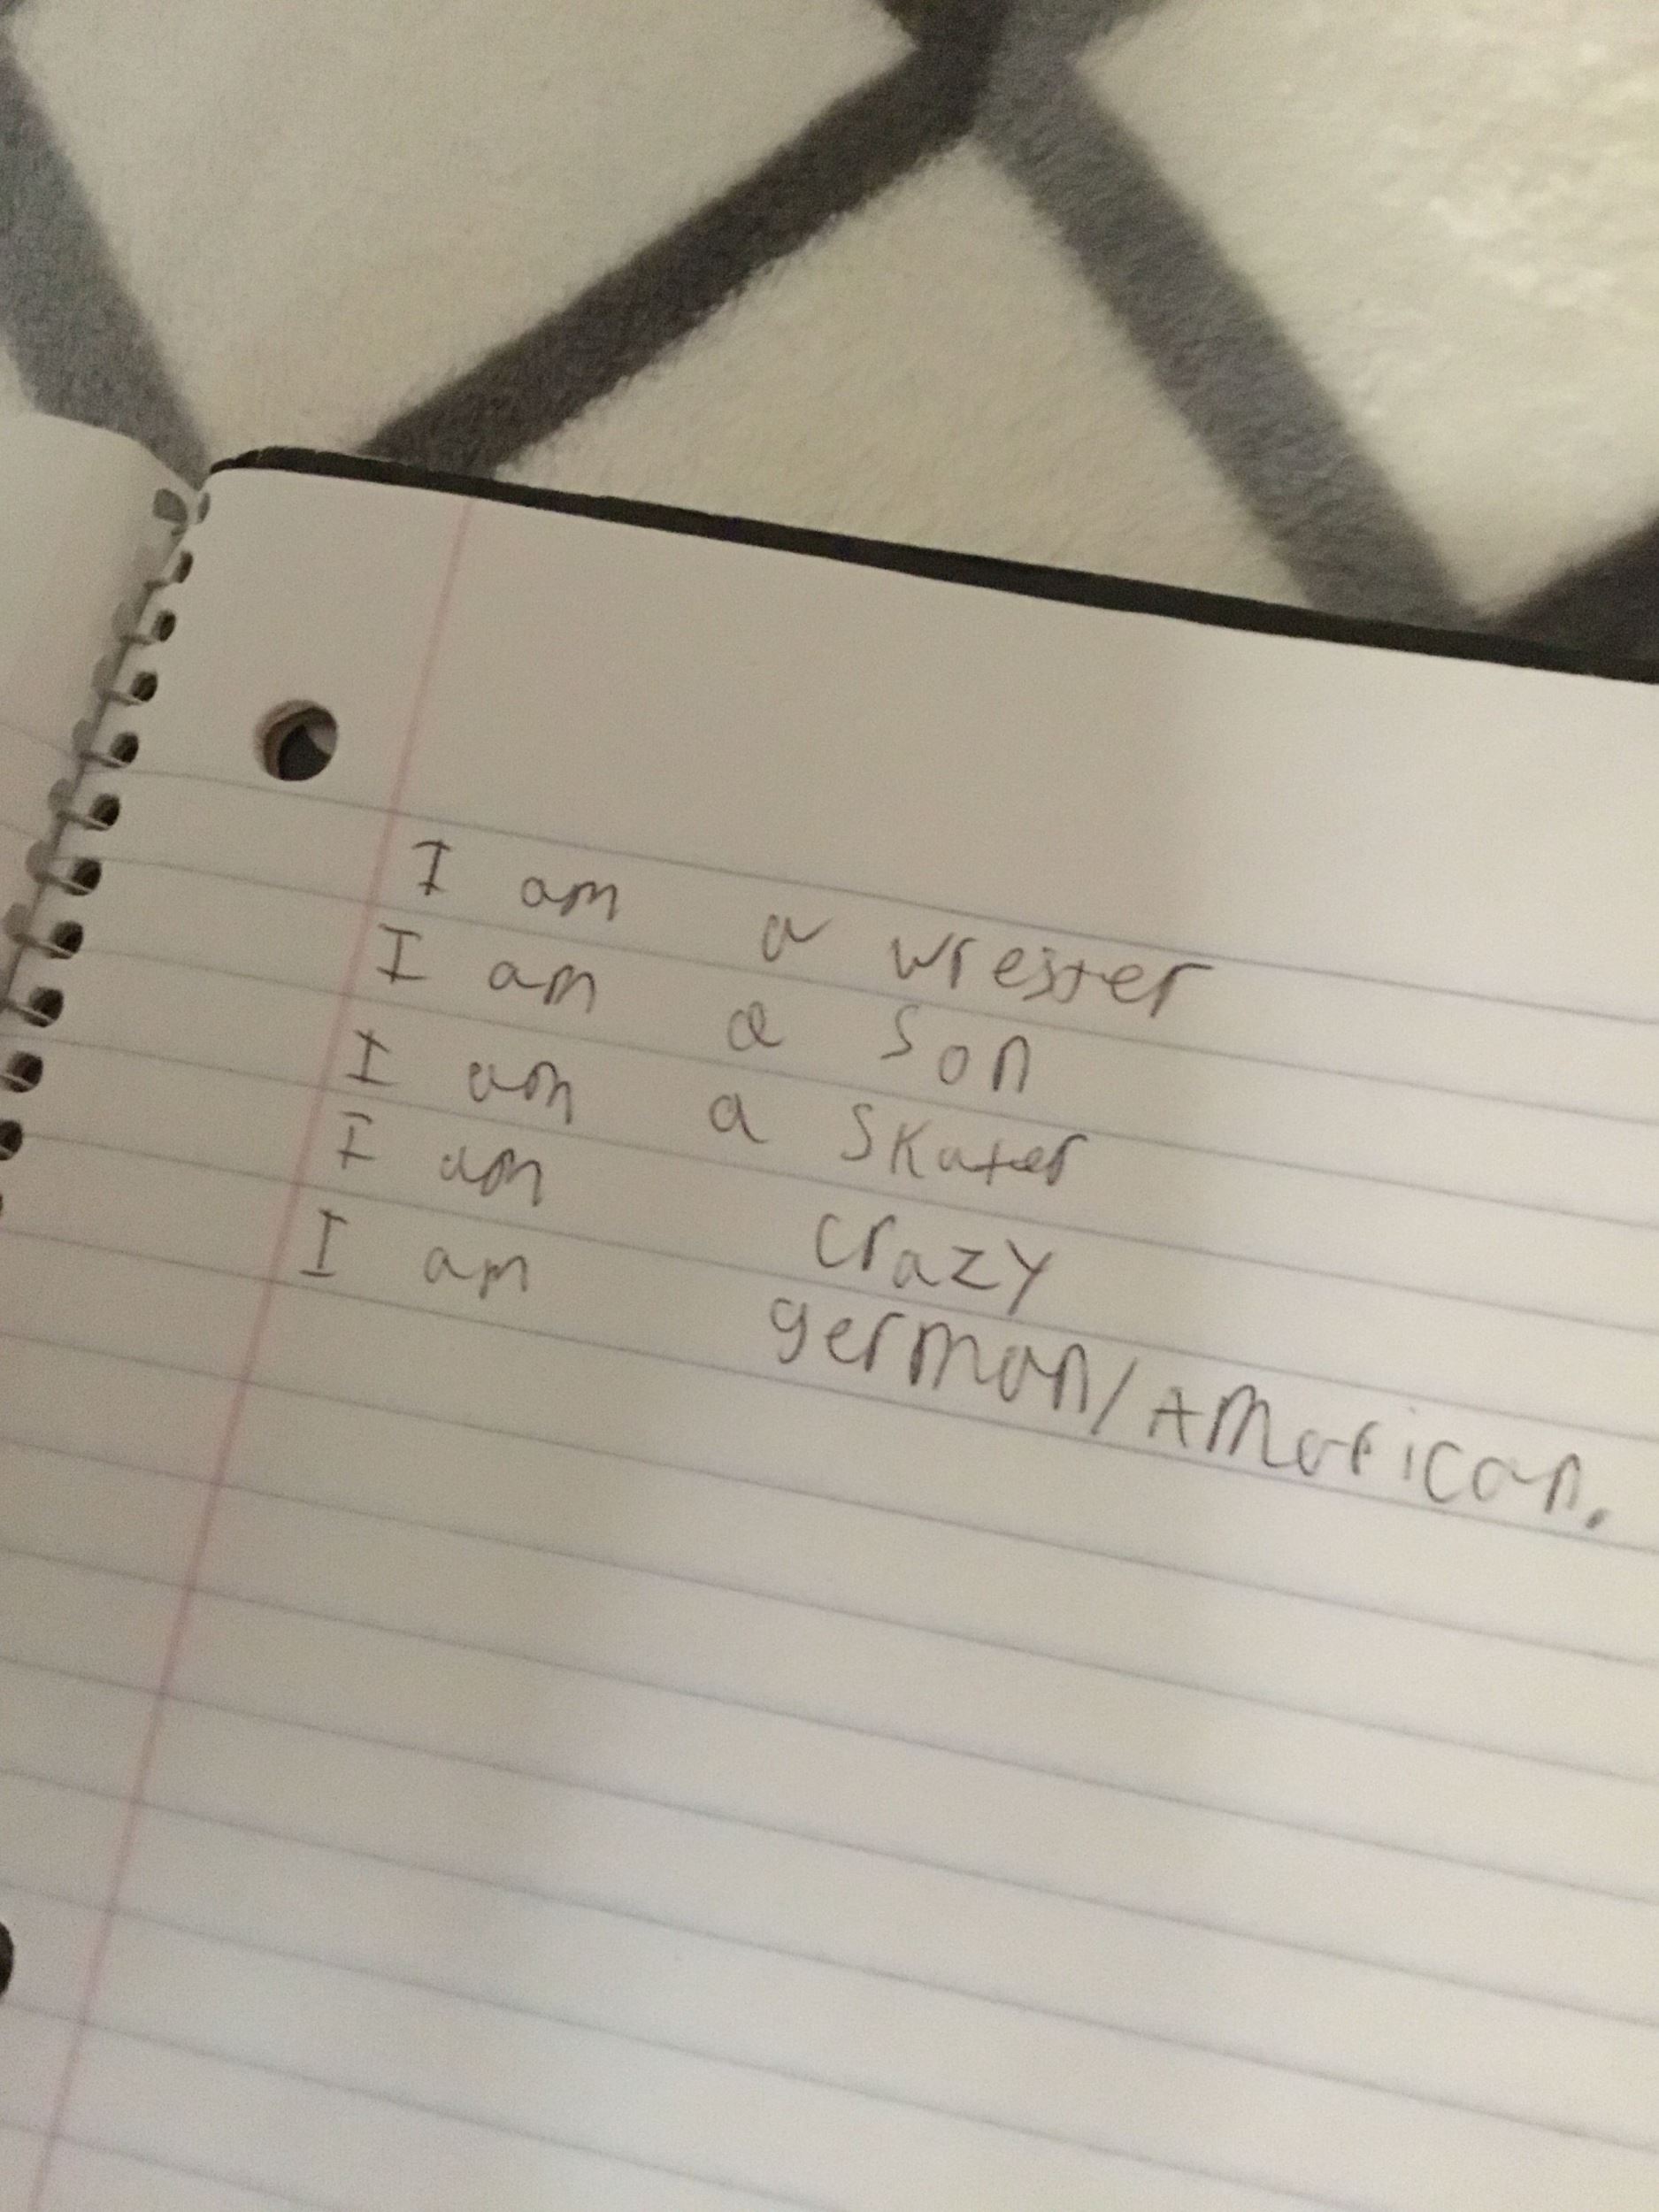 I am a wrester
I am a son
I am a skater
I am crazy
I am german/American.